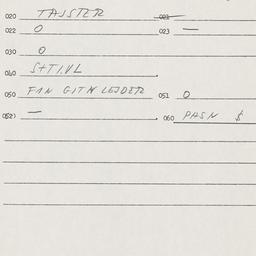 020 TAJSTER 021 —
022 0 023 —
030 0
040 S+TI.VL
050 FIN GITN LEJDER 051 0
052) — 060 PHSN $